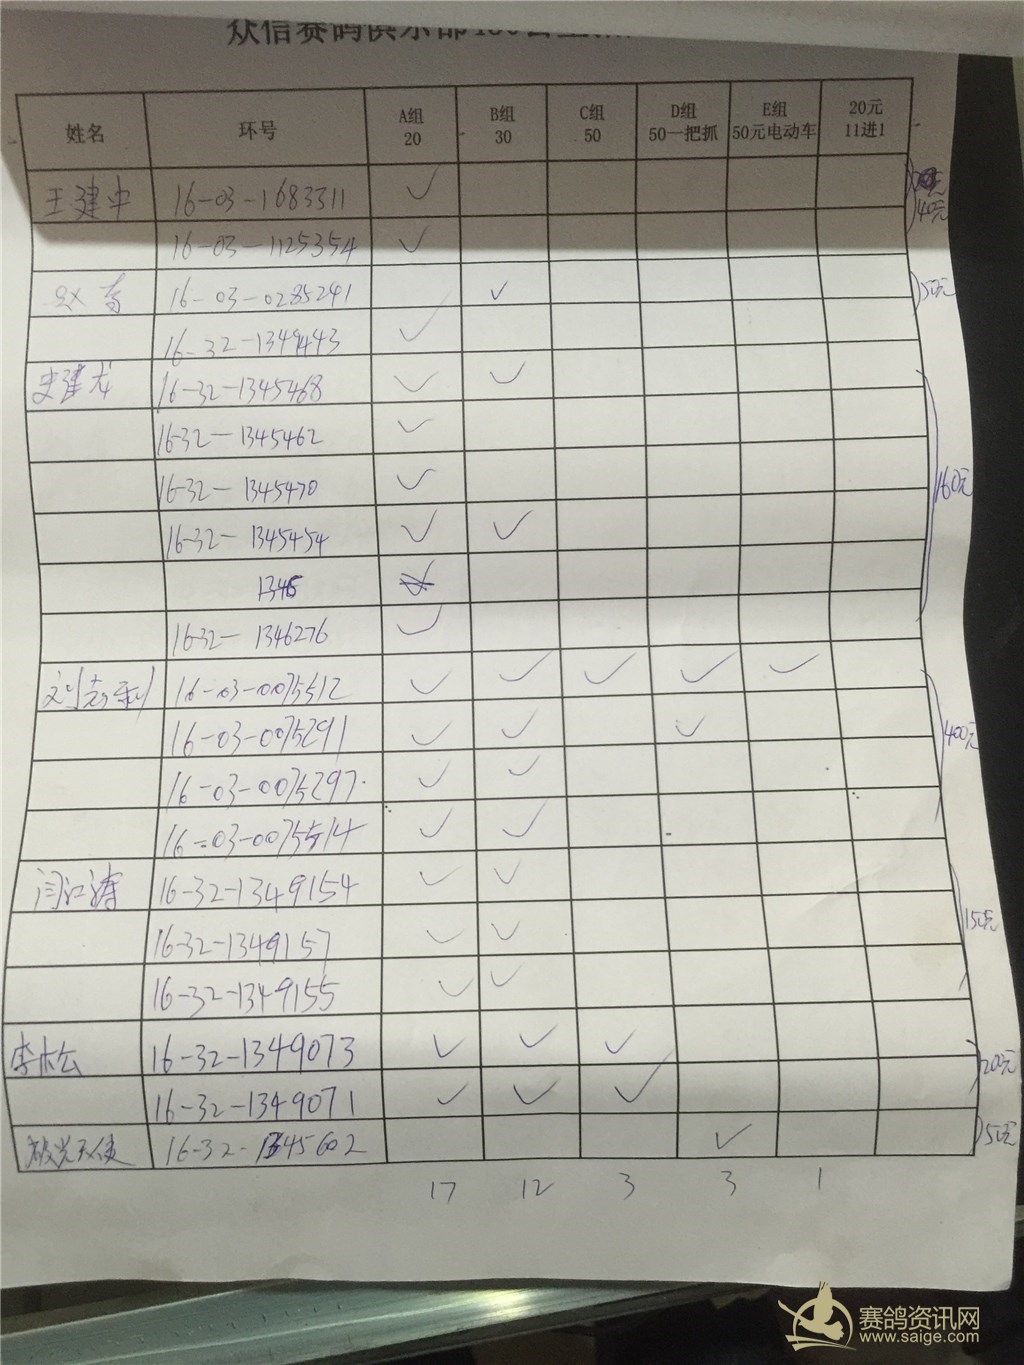 众信赛鸽俱乐部
姓名 环号 A组 20 B组 30 C组 50 D组 50一把抓 E组 50元电动车 20元 11进1
王建中 16-03-1683311 ✓ 40元
16-03-1125354 ✓
16-03-0285241 ✓ 50元
16-32-1349443 ✓
史建龙 16-32-1345468 ✓ ✓ 160元
16-32-1345462 ✓
16-32-1345470 ✓
16-32-1345454 ✓ ✓
1345
16-32-1346276 ✓
刘志利 16-03-0075512 ✓ ✓ ✓ ✓ ✓ 400元
16-03-0075291 ✓ ✓ ✓
16-03-0075297 ✓ ✓
16-03-0075514 ✓ ✓
闫江涛 16-32-1349154 ✓ ✓ 150元
16-32-1349157 ✓ ✓
16-32-1349155 ✓ ✓
李松 16-32-1349073 ✓ ✓ ✓ 200元
16-32-1349071 ✓ ✓ ✓
极光天使 16-32-1345602 ✓ 50元
17 12 3 3 1
赛鸽资讯网
www.saige.com